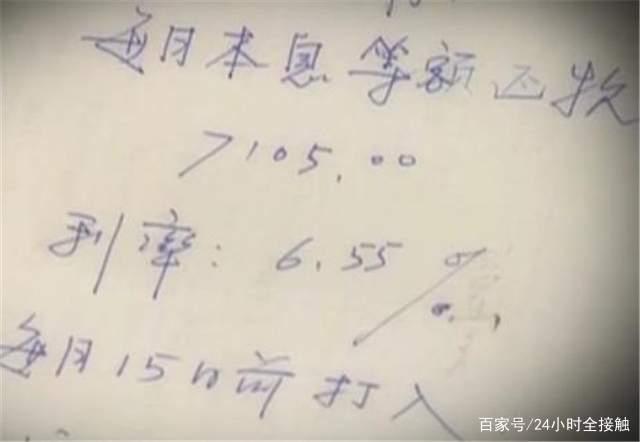 每月本息等额还款
7105.00
利率：6.55%
每月15日前打入
百家号/24小时全接触